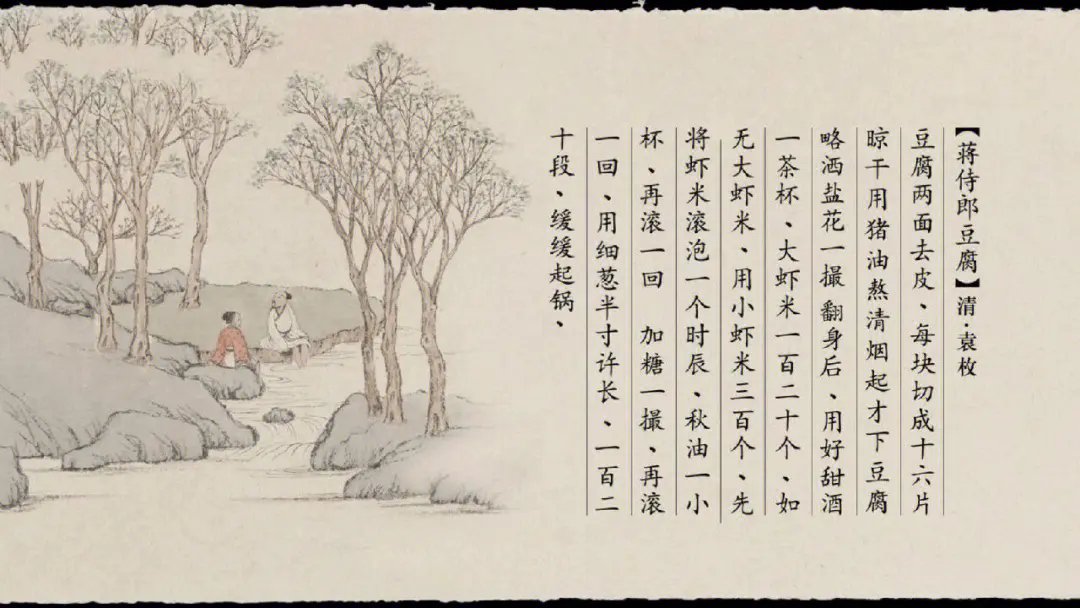 【蒋侍郎豆腐】清·袁枚
豆腐两面去皮、每块切成十六片
晾干用猪油熬清烟起才下豆腐
略洒盐花一撮翻身后、用好甜酒
一茶杯、大虾米一百二十个、如
无大虾米、用小虾米三百个、先
将虾米滚泡一个时辰、秋油一小
杯、再滚一回 加糖一撮、再滚
一回、用细葱半寸许长、一百二
十段、缓缓起锅、